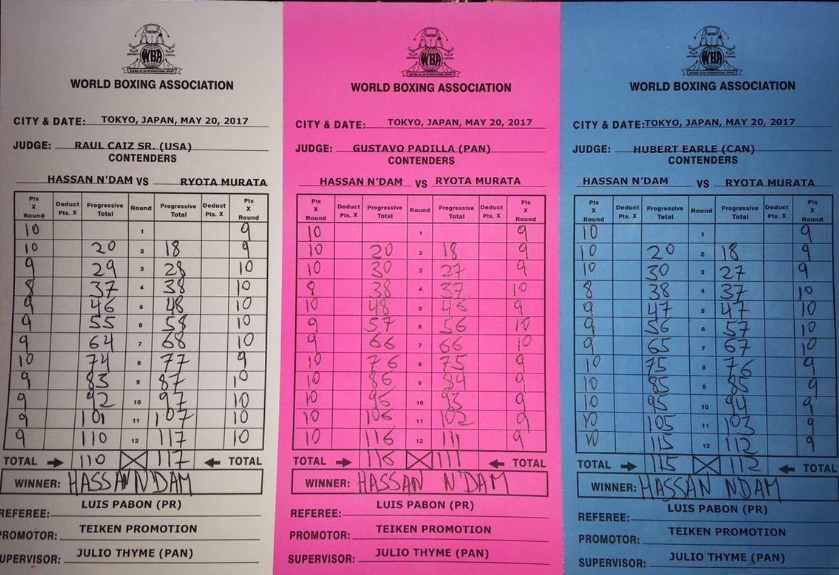 WBA
WORLD BOXING ASSOCIATION
CITY & DATE: TOKYO, JAPAN, MAY 20, 2017
JUDGE: RAUL CAIZ SR. (USA)
CONTENDERS
HASSAN N'DAM VS RYOTA MURATA
Pts X Round Deduct Pts. X Progressive Total Round Progressive Total Deduct Pts. X Pts X Round
10 1 9
10 20 2 18 9
9 29 3 28 10
8 37 4 38 10
9 46 5 48 10
9 55 6 58 10
9 64 7 68 10
10 74 8 77 9
9 83 9 87 10
9 92 10 97 10
9 101 11 107 10
9 110 12 117 10
TOTAL 110 117 TOTAL
WINNER: HASSAN N'DAM
REFEREE: LUIS PABON (PR)
PROMOTOR: TEIKEN PROMOTION
UPERVISOR: JULIO THYME (PAN)
WBA
WORLD BOXING ASSOCIATION
CITY & DATE: TOKYO, JAPAN, MAY 20, 2017
JUDGE: GUSTAVO PADILLA (PAN)
CONTENDERS
HASSAN N'DAM VS RYOTA MURATA
Pts X Round Deduct Pts. X Progressive Total Round Progressive Total Deduct Pts. X Pts X Round
10 1 9
10 20 2 18 9
10 30 3 27 9
8 38 4 37 10
10 48 5 46 9
9 57 6 56 10
9 66 7 66 10
10 76 8 75 9
10 86 9 84 9
10 96 10 93 9
10 106 11 102 9
10 116 12 111 9
TOTAL 116 111 TOTAL
WINNER: HASSAN N'DAM
REFEREE: LUIS PABON (PR)
PROMOTOR: TEIKEN PROMOTION
SUPERVISOR: JULIO THYME (PAN)
WBA
WORLD BOXING ASSOCIATION
CITY & DATE: TOKYO, JAPAN, MAY 20, 2017
JUDGE: HUBERT EARLE (CAN)
CONTENDERS
HASSAN N'DAM VS RYOTA MURATA
Pts X Round Deduct Pts. X Progressive Total Round Progressive Total Deduct Pts. X Pts X Round
10 1 9
10 20 2 18 9
10 30 3 27 9
8 38 4 37 10
9 47 5 47 10
9 56 6 57 10
9 65 7 67 10
10 75 8 76 9
10 85 9 85 9
10 95 10 94 9
10 105 11 103 9
10 115 12 112 9
TOTAL 115 112 TOTAL
WINNER: HASSAN NDAM
REFEREE: LUIS PABON (PR)
PROMOTOR: TEIKEN PROMOTION
SUPERVISOR: JULIO THYME (PAN)